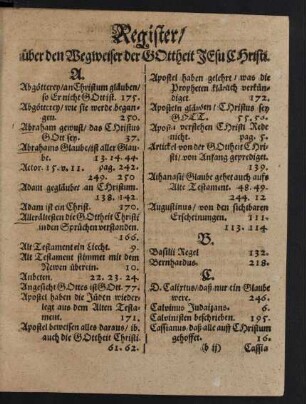 Register/
über den Wegweiser der GOttheit JEsu CHristi.
A.
Abgötterey/an Christum gläuben/
so Er nicht GOtt ist. 175.
Abgötterey/ wie sie werde began-
gen. 250.
Abraham gewust/ das CHristus
GOtt sey. 37.
Abrahams Glaube/ist aller Glau-
be. 13. 14. 44.
Actor. 15. v. 11. pag. 242.
249. 250
Adam gegläubet an CHristum.
138. 142.
Adam ist ein Christ. 170.
Allerältesten die GOttheit Christi
in den Sprüchen verstanden.
166.
Alt Testament ein Liecht. 9.
Alt Testament stimmet mit dem
Newen überein. 10.
Anbeten. 22. 23. 24.
Angesicht GOttes ist GOtt. 77.
Apostel haben die Jüden wieder-
legt aus dem Alten Testa-
ment. 171.
Apostel beweisen alles daraus/ ib.
auch die GOttheit Christi.
61. 62.
Apostel haben gelehrt/ was die
Propheten klärlich verkün-
diget. 172.
Aposteln gläuben/ CHristus sey
GOTT. 55. 56.
Apostel verstehen Christi Rede
nicht. pag. 5.
Artikel von der GOttheit Chri-
sti/ von Anfang geprediget.
139.
Athanasii Glaube gehet auch auffs
Alte Testament. 48. 49.
244. 12
Augustinus/ von den sichtbaren
Erscheinungen. 111.
113. 114
B.
Basilii Regel 132.
Bernhardus. 218.
C.
D. Calixtus/ daß nur ein Glaube
were. 246.
Calvinus Judaizans. 6.
Calvinisten beschrieben. 195.
Cassianus, daß alle auff CHristum
gehoffet. 16.
(b ij) Cassia